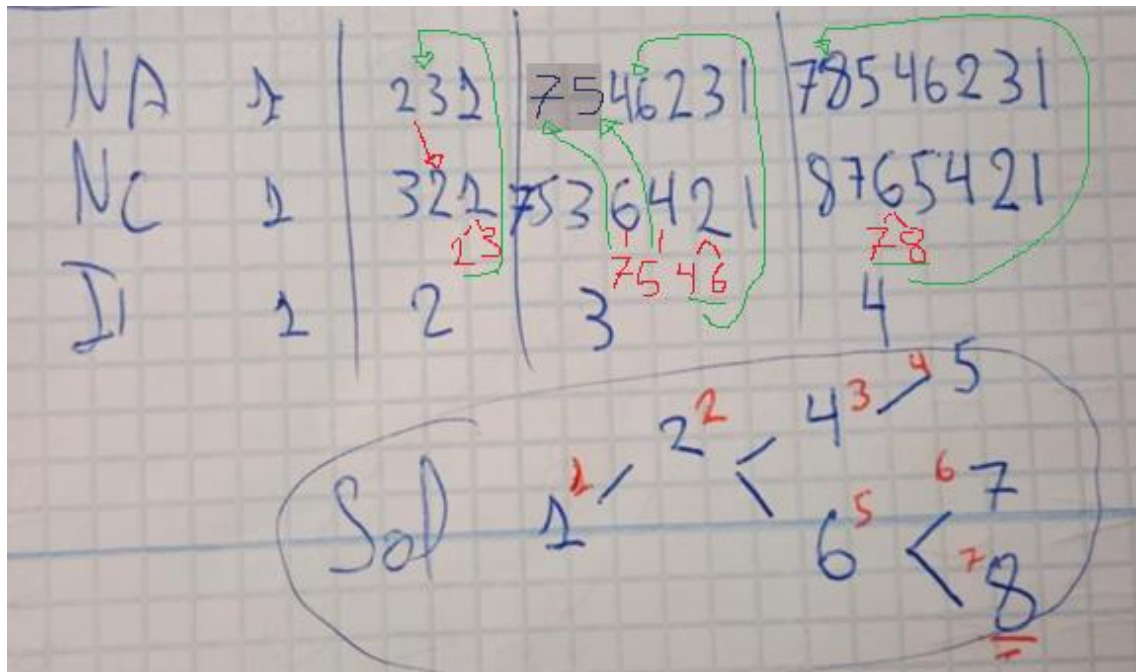 NA 1 231 7546231 78546231
NC 1 321 7536421 8765421
13 75 46 78
D 1 2 3 4
Sol 1 1 2 2 4 3 4 5
6 5 6 7
7 8